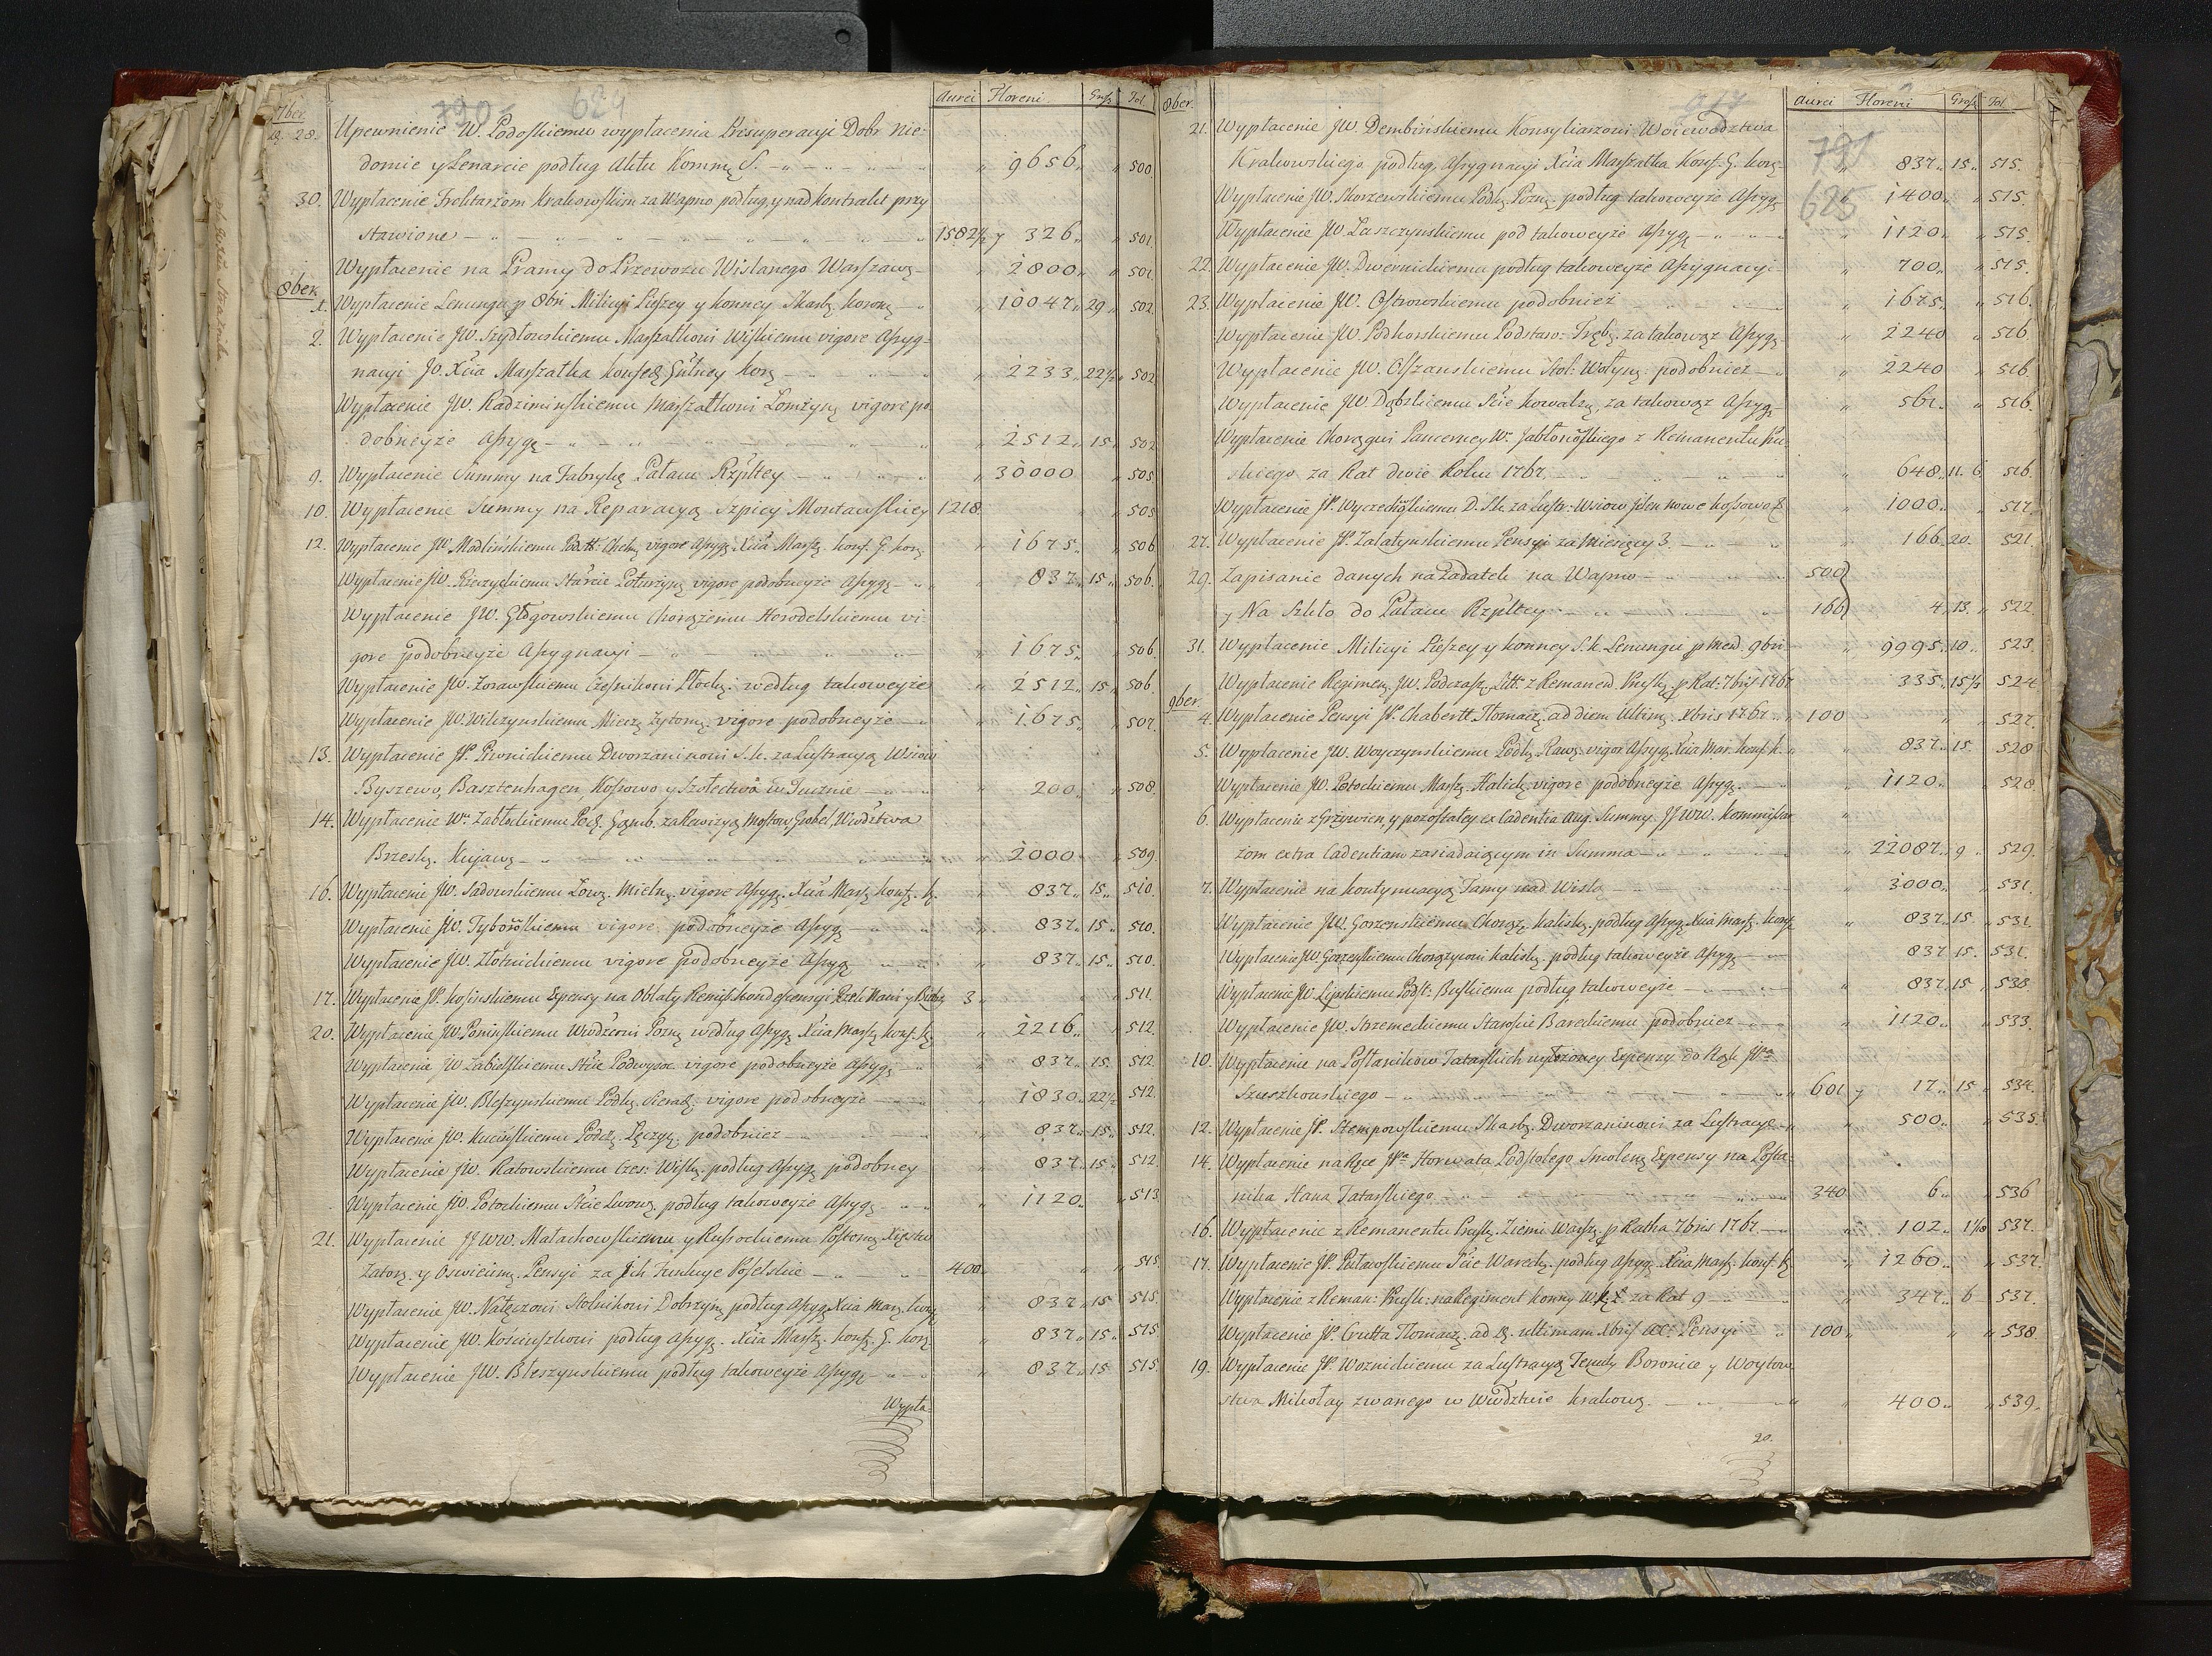 790 624
7ber. Aurei Floreni Groſz Fol.
D. 28. Upewnienie W. Podoſkiemu wypłacenia Presuperacyi Dobr Nie-
domie y Lenarcie podług Aktu Kommę S. 9656 500
30. Wypłacenie Frochtarzom Krakowſkim za Wapno podług y nad kontrakt przy
stawione 1582½ y 326 501.
Wypłacenie na Pramy do Przewozu Wiślanego Warſzawę 2800 501
8ber.
1. Wypłacenie Lenungu p 8bri Milicyi Pieſzey y konney Skarbę koronę 10047 29 502
2. Wypłacenie JW. Szydłowskiemu Marſzałkowi Wiſkiemu vigore Aſyg-
nacyi JO. Xcia Marſzałka konfedę Gńlney korę 2233 22½ 502
Wypłacenie JW. Radziminſkiemu Marſzałkowi Łomżynę vigore po-
dobneyże Aſygę 2512 15 502
9. Wypłacenie Summy na Fabrykę Pałacu Rzpltey 30000 505
10. Wypłacenie Summy na Reparacyą Szpicy Montawſkiey 1218 505
12. Wypłacenie JW. Modlińſkiemu Podtt. Chełm. vigore Aſygę Xcia Marſzę konf. G. korę 1675 506
Wypłacenie JW. Rzeczyckiemu Starcie Poturzynę vigore podobneyże Aſygę 837 15 506.
Wypłacenie JW. Głogowskiemu Chorążemu Horodelskiemu vi-
gore podobneyże Aſygnacyi 1675 506
Wypłacenie JW. Zorawſkiemu Czeſnikowi Płockę według takoweyże 2512 15 506
Wypłacenie JW. Wilczynskiemu Mieczę Żytomę vigore podobneyże 1675 507.
13. Wypłacenie JP. Piwnickiemu Dworzaninowi S. k. za Luſtracyą Wsiow
Byszewo, Basztenhagen, Koſsowo y Szołectwa w Tucznie 200 508
14. Wypłacenie Wu Zabłockiemu Pod. Gąmb. za Rewizyą Moſtow, Grobel, Wwdztwa
Brzeskę. Kujawę 2000 509
16. Wypłacenie JW. Sadowskiemu Łowę. Mielnę. vigore Aſygę. Xcia Marſzę konfę. k. 837 15 510
Wypłacenie JW. Tyborſkiemu vigore podobneyże Aſygę 837 15 510.
Wypłacenie JW. Złotnickiemu vigore podobneyże Aſygę 837 15 510.
17. Wypłacenie JP. koſinskiemu Expensy na Oblaty 3 511
20. Wypłacenie JW. Poninſkiemu Wwdzicowi Poznę według Aſygę Xcia Marſzę konf. kę 2216 512.
Wypłacenie JW Zabielſkiemu Stcie Podwysoc. vigore podobneyże Aſygę 837 15 512.
Wypłacenie JW. Bleſzyńskiemu Podkę. Sieradę. vigore podobneyże 1830 22½ 512.
Wypłacenie JW. Kucińſkiemu Podczę. Łęczycę. podobnież 837 15 512.
Wypłacenie JW. Ratowskiemu Czes: Wiſkę. podług Aſygę podobney 837 15 512
Wypłacenie JW. Potockiemu Stcie Lwowę podług takoweyże Aſygę 1120 513
21. Wypłacenie JJWW. Małachowſkiemu y Ruſsockiemu Poſtomę Xięstw
Zatorę. y Oswiecimę. Pensyi za Ich Funkcye Poſelskie 400 515
Wypłacenie JW. Nałęczowi Stolnikowi Dobrzynę podług Aſygę Xcia Marę. korę 837 15 515
Wypłacenie JW. Kościuſzkowi podług Aſygę. Xcia Marſzę. konfę. G. korę 837 15 515
Wypłacenie JW. Błeszynskiemu podług takoweyże Aſygę 837 15 515
Wypła-
8ber. Aurei Floreni Groſz Fol.
791 625
21. Wypłacenie JW. Dembińskiemu Konsyliarzowi Woiewodztwa
Krakowskiego podług Aſsygnacyi Xcia Marſzałka Konf. G. korę 837 15 515.
Wypłacenie JW. Skorzewskiemu Podkę. Poznę. podług takoweyże Aſsygę 1400 515.
Wypłacenie JW. Laszczynskiemu pod takoweyże Aſsygę 1120 515
22. Wypłacenie JW. Dwernickiemu podług takoweyże Aſsygnacyi 700 515.
23. Wypłacenie JW. Oſtrowskiemu podobnież 1675 516
Wypłacenie JW. Podhorskiemu Podstaw: Trębę. za takowąż Aſsygę 2240 516
Wypłacenie JW. Olſzanskiemu Stol: Wołynę. podobnież 2240 516
Wypłacenie JW. Dąbskiemu Stcie kowalę, za takowąż Aſsygę 561 516
Wypłacenie Chorągwi Pancerney W. Jabłonoſkiego z Remanentu Pru
skiego za Rat dwie Roku 1767 648 11. 6 516
Wypłacenie JP. Wyczechoſkiemu D.S.k. za Luſtr: Wsiow 1000 517.
27. Wypłacenie JP. Załatynskiemu Pensyi za Miesięcy 3. 166 20. 521
29. Zapisanie danych na Zadatek na Wapno 500
y Na Szkło do Pałacu Rzpltey 166 4 13. 522
31. Wypłacenie Milicyi Pieſzey y konney S.k. Lenungu p Mens. 9bri 9995 10. 523
Wypłacenie Regimen. JW. Podczaſzę. Litt. z Remanen Pruſkę p Rat: 7bris 1767 335 15⅓ 524
9ber.
4. Wypłacenie Pensyi JP. Chabertt Tłomaczę. ad diem Ultimę. Xbris 1767. 100 527.
5. Wypłacenie JW. Woyczynskiemu Podkę. Rawę. vigor Aſsygę. Xcia Mar. konf. k. 837 15. 528
Wypłacenie JW. Potockiemu Marſzę. Halickę vigore podobneyże Aſsygę. 1120 528
6. Wypłacenie z Grzywien, y pozoſtałey ex Cadentia Aug. Summy JJWW. Kommiſsar
zom extra Cadentiam zasiadaiącym in Summa 22087 9 529.
7. Wypłacenie na kontynuacyą Tamy nad Wisłą 3000 531.
Wypłacenie JW. Gorzenskiemu Chorąż. kaliskę. podług Aſsygę. Xcia Marſzę. konf. 837 15. 531
Wypłacenie JW. Gorzeńſkiemu Chorążycowi kaliskę. podług takoweyże Aſsygę 837 15. 531.
Wypłacenie JW. Lipskiemu Podſt: Buſkiemu podług takoweyże 837 15 533
Wypłacenie JW. Strzemeckiemu Staroście Bareckiemu podobnież 1120 533.
10. Wypłacenie na Poſłanikow Tatarſkich wyłożoney Expensy do Rąk JPa
Szuszkowskiego 601 y 17 15 534.
12. Wypłacenie JP. Stempowſkiemu Skarbę. Dworzaninowi za Luſtracye 500 535.
14. Wypłacenie na Ręce JPa Horwata Podſtolego Smolenę Expensy na Poſła-
nika Hana Tatarſkiego 340 6 536
16. Wypłacenie z Remanentu Pruſkę. Ziemi Warſzę. p Ratha 7bris 1767. 102. 1⅟₁₈ 537.
17. Wypłacenie JP. Puławſkiemu Stcie Wareckę. podług Aſsygę. Xcia Marſz. konf. kę 1260 537
Wypłacenie z Reman: Pruſk: na Regiment konny W.X.L za Rat 9 347 6 537.
Wypłacenie JP. Crutta Tłomaczę. ad D. ultimam Xbris ac: Pensyi 100 538
19. Wypłacenie JP. Woznickiemu za Luſtracyą Tenuty Borownice y Woytow-
stwa Mikołay zwanego w Wwdztwie krakowę. 400 539
20.